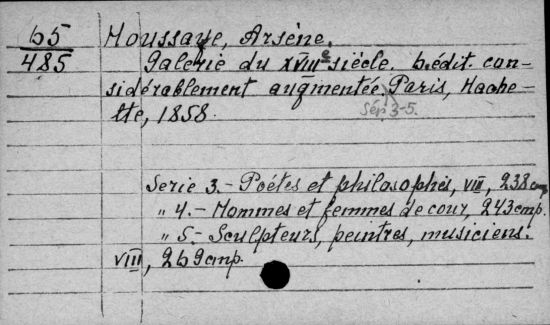 65
485
Houssaye, Arsène.
Galerie du XVIIIe siècle. 6.édit. con-
sidérablement augmentée. Paris, Hache-
tte, 1858.
Sér. 3-5.
Serie 3.- Poétes et philosophes, VIII, 238 cmp.
„ 4.- Hommes et femmes de cour, 243 cmp.
„ 5.- Sculpteurs, peintres, musiciens.
VIII, 269 cmp.